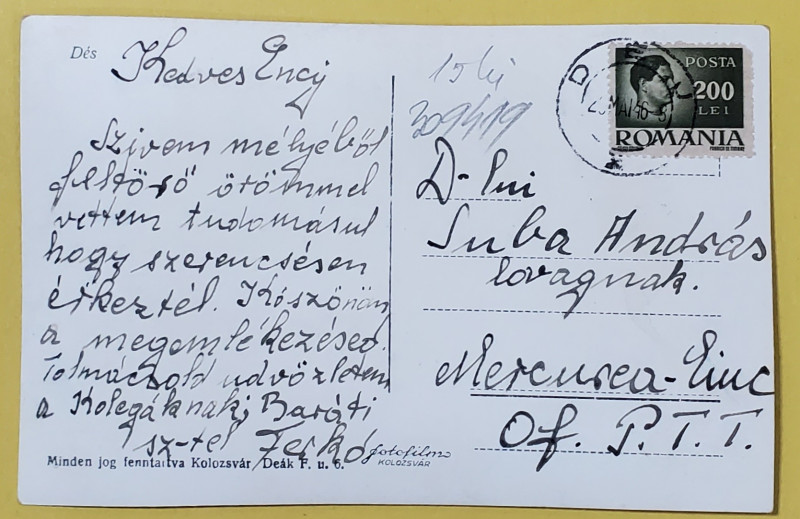 Dés
Kedves Encij
Szivem mélyéből
feltörő örömmel
vettem tudomásul
hogy szerencsésen
érkeztél. Köszönöm
a megemlékezésed.
Tolmácsold üdvözletem
a Kolegáknak; Baráti
sz-tel Ferkó
Minden jog fenntartva Kolozsvár Deák F. u. 6.
fotofilm
KOLOZSVÁR
15 lei
309419
POSTA
200
LEI
ROMANIA
D-lui
Suba András
lovagnak.
Mercurea-Ciuc
Of. P.T.T.